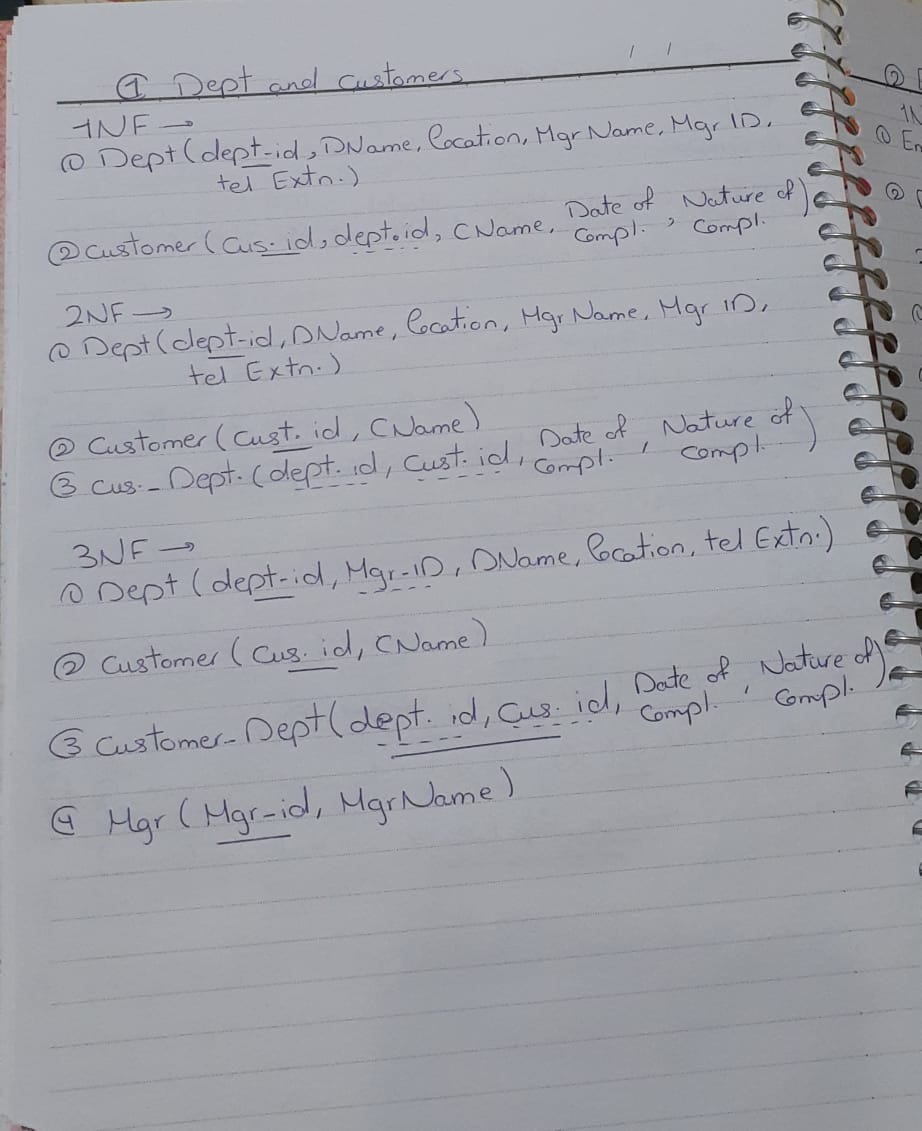 ① Dept and Customers
1NF →
① Dept (dept-id, DName, location, Mgr Name, Mgr ID,
tel Extn.)
② Customer (Cus. id, dept.id, CName, Date of Compl., Nature of Compl.)
2NF →
① Dept (dept-id, DName, location, Mgr Name, Mgr ID,
tel Extn.)
② Customer (Cust. id, CName)
③ Cus.-Dept. (dept. id, Cust. id, Date of Compl., Nature of Compl.)
3NF →
① Dept (dept-id, Mgr-ID, DName, location, tel Extn.)
② Customer (Cus. id, CName)
③ Customer-Dept (dept. id, Cus. id, Date of Compl., Nature of Compl.)
④ Mgr (Mgr-id, MgrName)
②
1N
① En
②